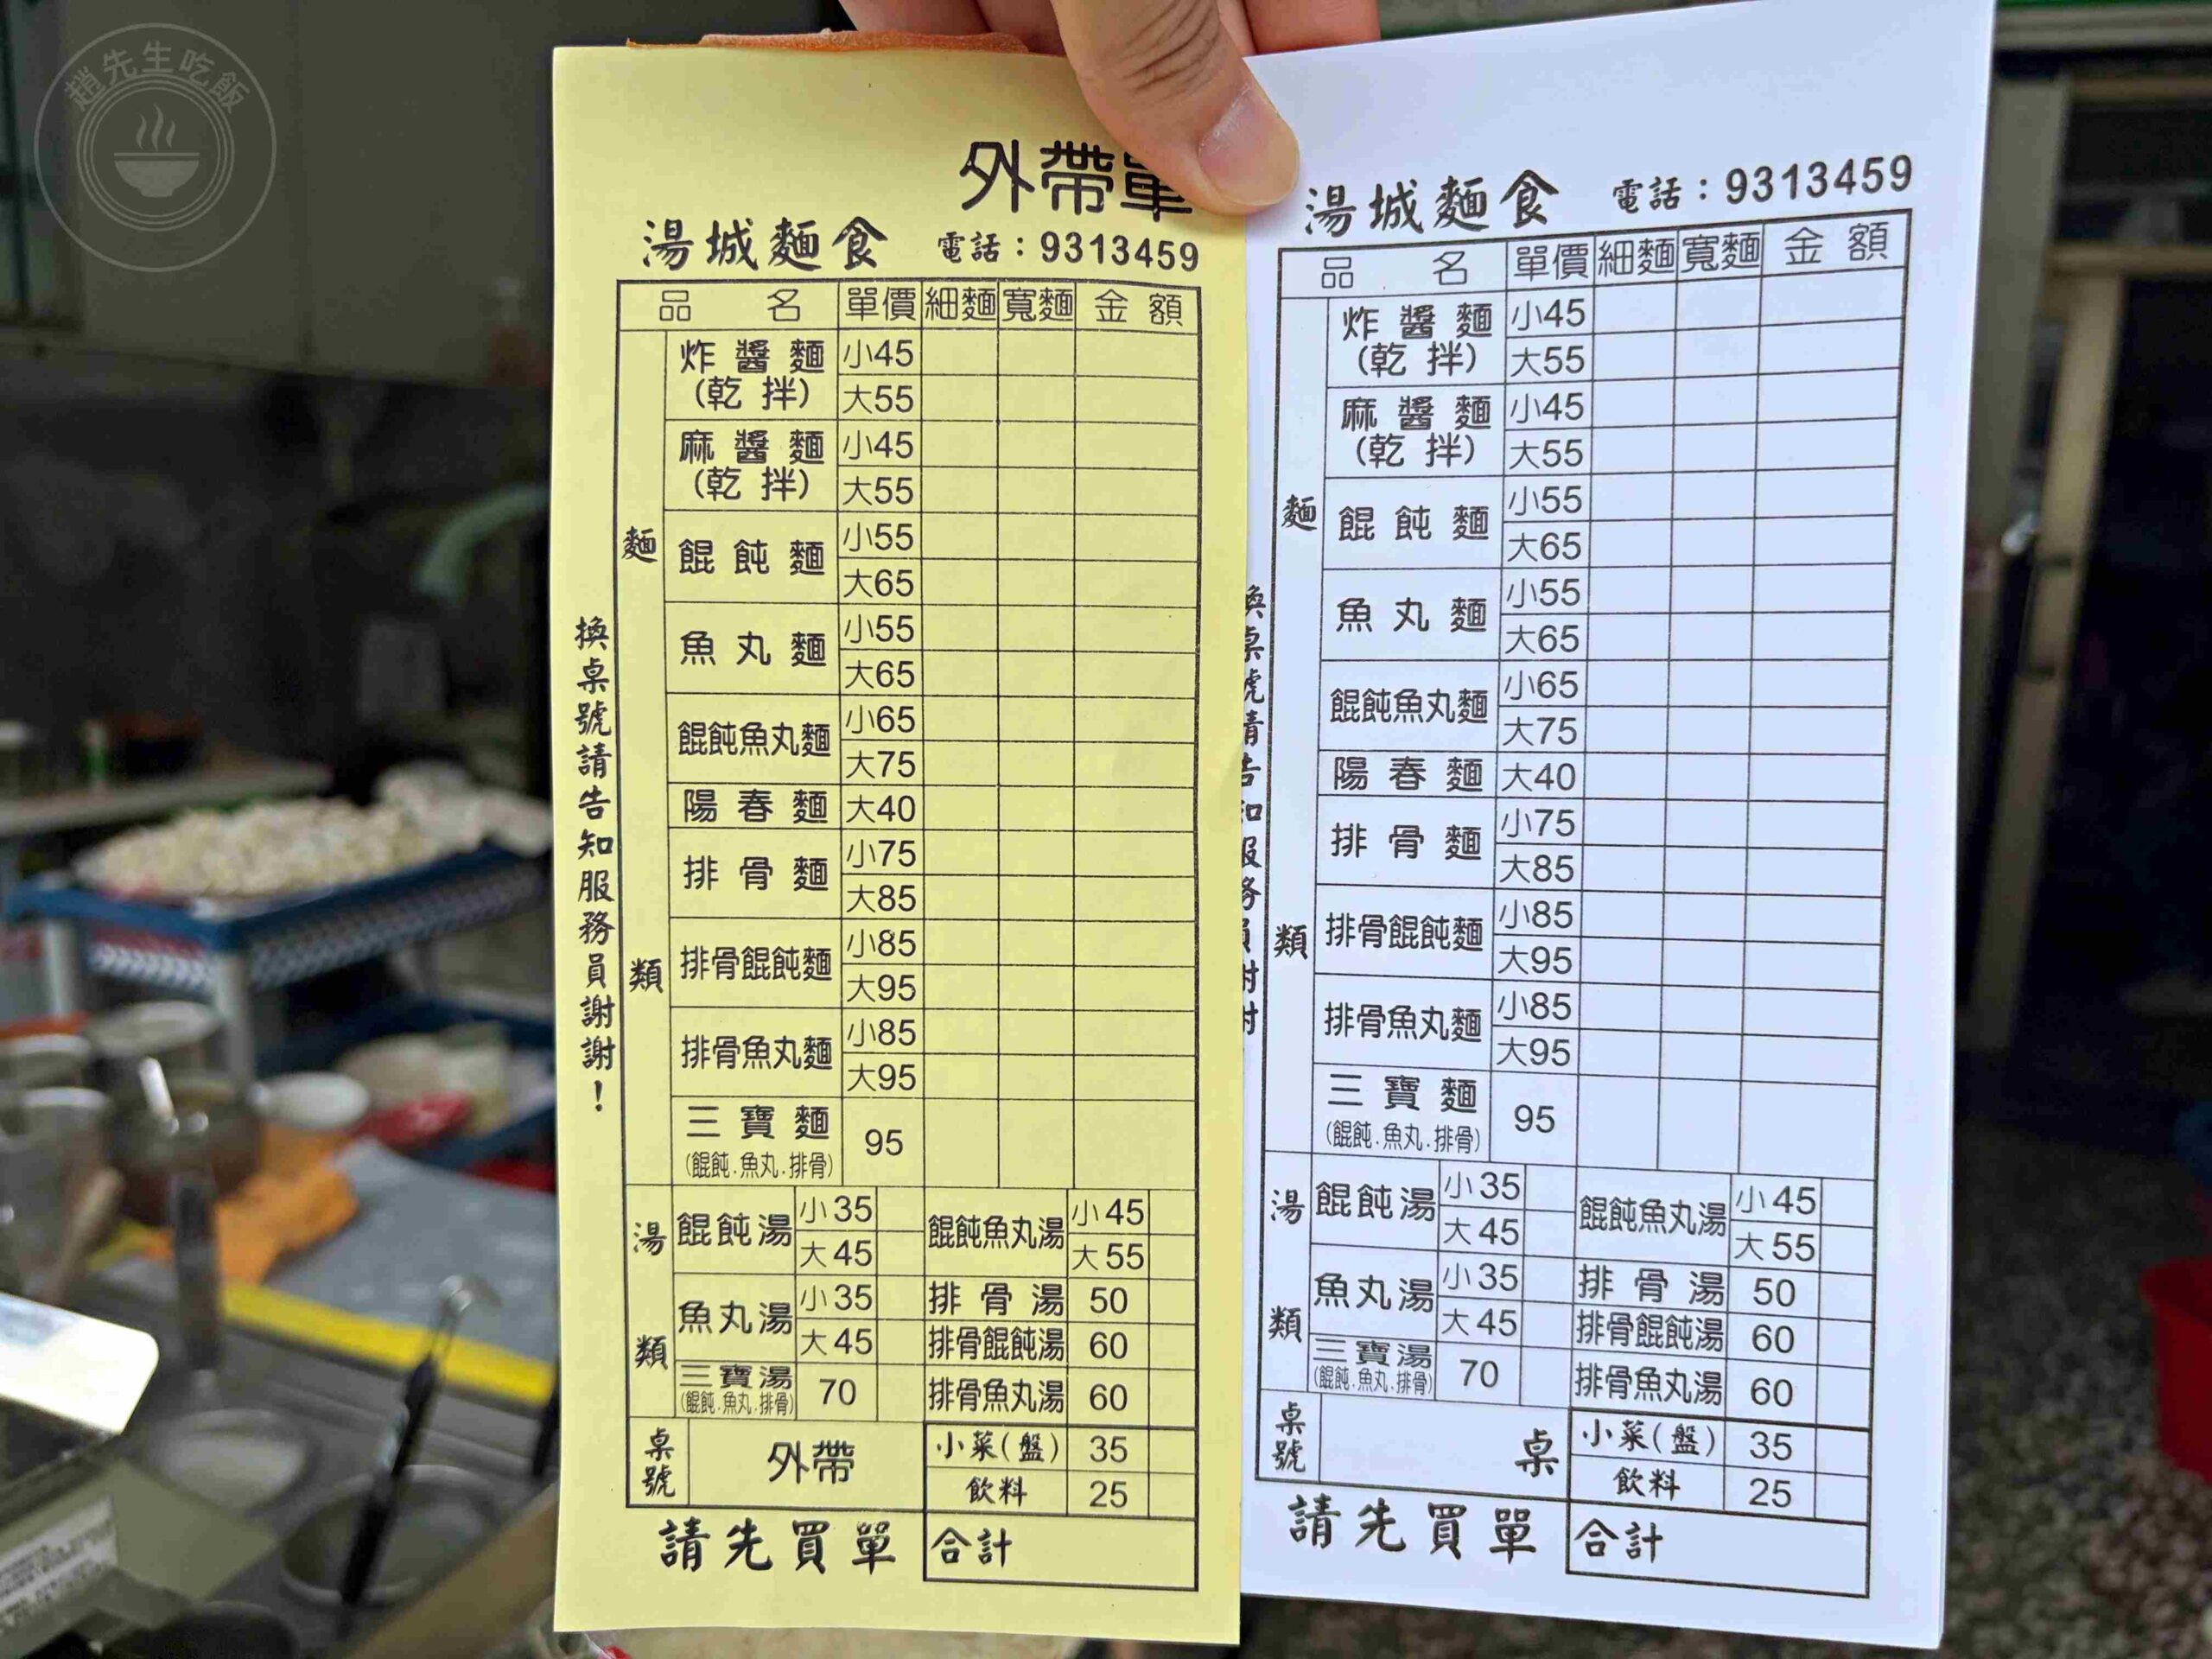 趙先生吃飯
外帶單
湯城麵食 電話：9313459
品 名 單價 細麵 寬麵 金額
麵類
炸醬麵 (乾拌) 小45
大55
麻醬麵 (乾拌) 小45
大55
餛飩麵 小55
大65
魚丸麵 小55
大65
餛飩魚丸麵 小65
大75
陽春麵 大40
排骨麵 小75
大85
排骨餛飩麵 小85
大95
排骨魚丸麵 小85
大95
三寶麵 95
(餛飩.魚丸.排骨)
湯類
餛飩湯 小35 餛飩魚丸湯 小45
大45 大55
魚丸湯 小35 排骨湯 50
大45 排骨餛飩湯 60
三寶湯 70 排骨魚丸湯 60
(餛飩.魚丸.排骨)
桌號 外帶 小菜(盤) 35
飲料 25
請先買單 合計
換桌號請告知服務員謝謝！
湯城麵食 電話：9313459
品 名 單價 細麵 寬麵 金額
麵類
炸醬麵 (乾拌) 小45
大55
麻醬麵 (乾拌) 小45
大55
餛飩麵 小55
大65
魚丸麵 小55
大65
餛飩魚丸麵 小65
大75
陽春麵 大40
排骨麵 小75
大85
排骨餛飩麵 小85
大95
排骨魚丸麵 小85
大95
三寶麵 95
(餛飩.魚丸.排骨)
湯類
餛飩湯 小35 餛飩魚丸湯 小45
大45 大55
魚丸湯 小35 排骨湯 50
大45 排骨餛飩湯 60
三寶湯 70 排骨魚丸湯 60
(餛飩.魚丸.排骨)
桌號 桌 小菜(盤) 35
飲料 25
請先買單 合計
換桌號請告知服務員謝謝